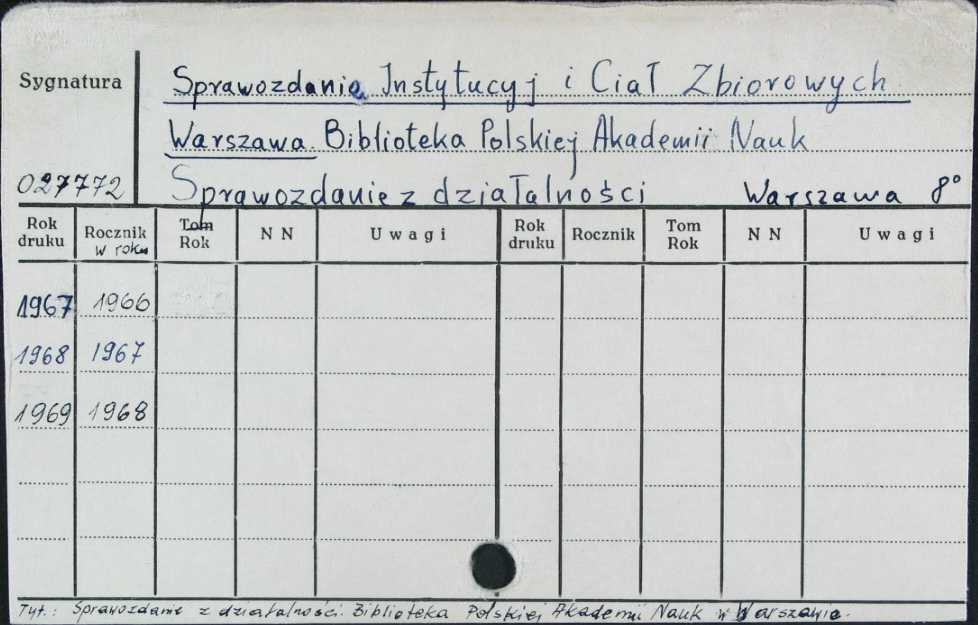 Sygnatura
Sprawozdanie Instytucyj i Ciał Zbiorowych
Warszawa. Biblioteka Polskiej Akademii Nauk
027772 Sprawozdanie z działalności Warszawa 8°
Rok druku Rocznik w roku Tom Rok N N Uwagi Rok druku Rocznik Tom Rok N N Uwagi
1967 1966
1968 1967
1969 1968
Tyt.: Sprawozdanie z działalności Biblioteka Polskiej Akademii Nauk w Warszawie.